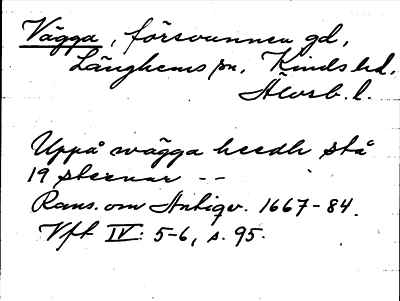 Vägga, försvunnen gd,
Länghems sn, Kinds hd,
Älvsb. l.
Uppå wägga heedh stå
19 steenar --
Rans. om Antiqv. 1667-84.
Vft IV: 5-6, s. 95.